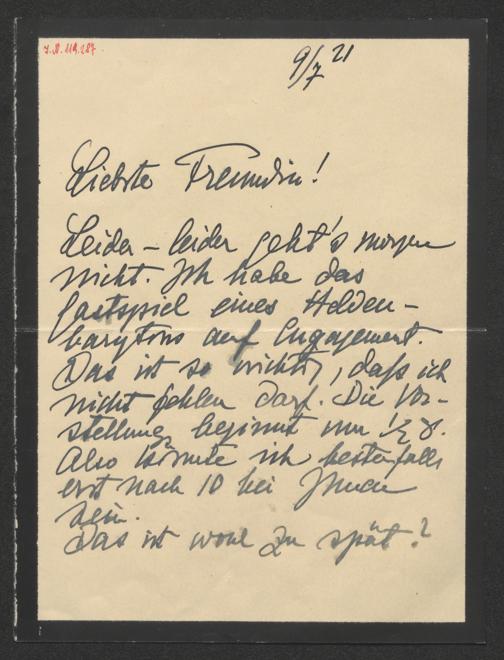 I.N. 119.287
9/7 21
Liebste Freundin!
Leider – leider geht's morgen
nicht. Ich habe das
Gastspiel eines Helden-
barytons auf Engagement.
Das ist so wichtig, daß ich
nicht fehlen darf. Die Vor-
stellung beginnt um ½ 8.
Also könnte ich bestenfalls
erst nach 10 bei Ihnen
sein.
Das ist wohl zu spät?